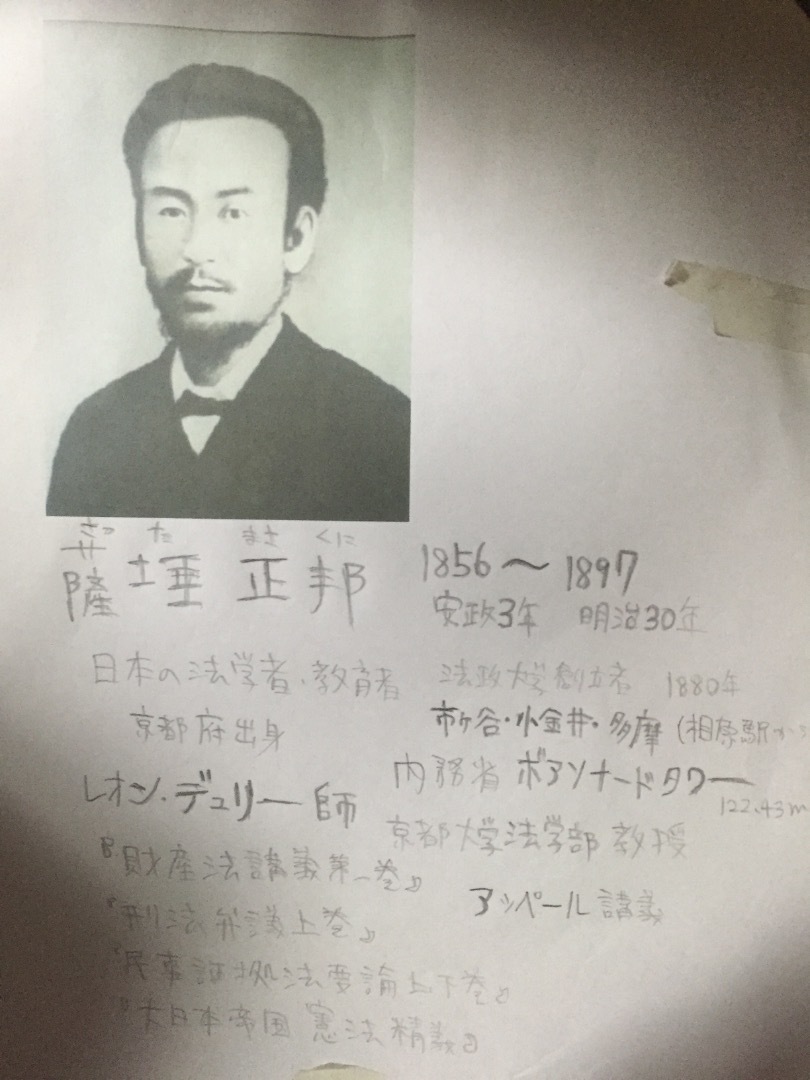 さつ た まさ くに
薩埵正邦 1856～1897
安政3年 明治30年
日本の法学者・教育者 法政大学創立者 1880年
京都府出身 市ヶ谷・小金井・多摩(相原駅から
レオン・デュリー師 内務省 ボアソナードタワー
122.43m
京都大学法学部教授
『財産法講義第一巻』
アッペール講義
『刑法弁議上巻』
『民事証拠法要論上下巻』
『大日本帝国憲法精義』